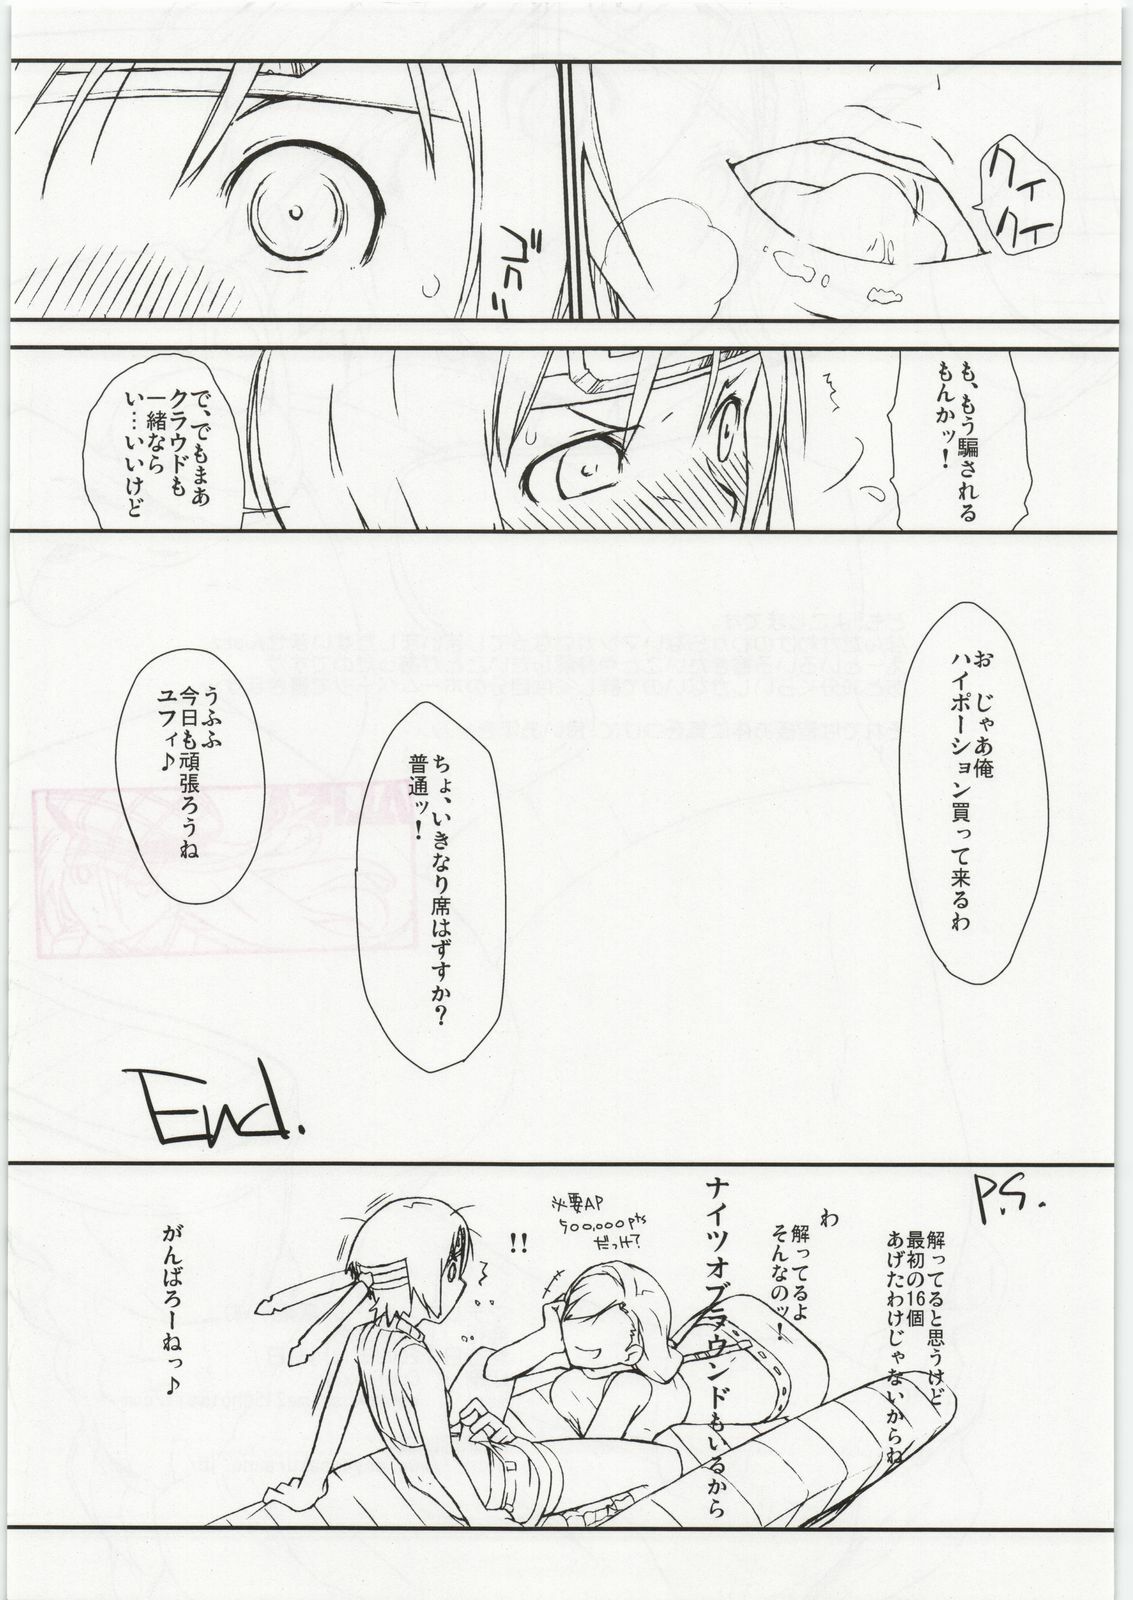 クイ
クイ
も、もう騙される
もんかッ!
で、でもまあ
クラウドも
一緒なら
い…いいけど
お じゃあ俺
ハイポーション買って来るわ
ちょ、いきなり席はずすか?
普通ッ!
うふふ
今日も頑張ろうね
ユフィ♪
End.
P.S.
解ってると思うけど
最初の16個
あげたわけじゃないからね
わ
解ってるよ
そんなのッ!
ナイツオブラウンドもいるから
必要AP
500,000pts
だっけ?
!!
がんばろーねっ♪